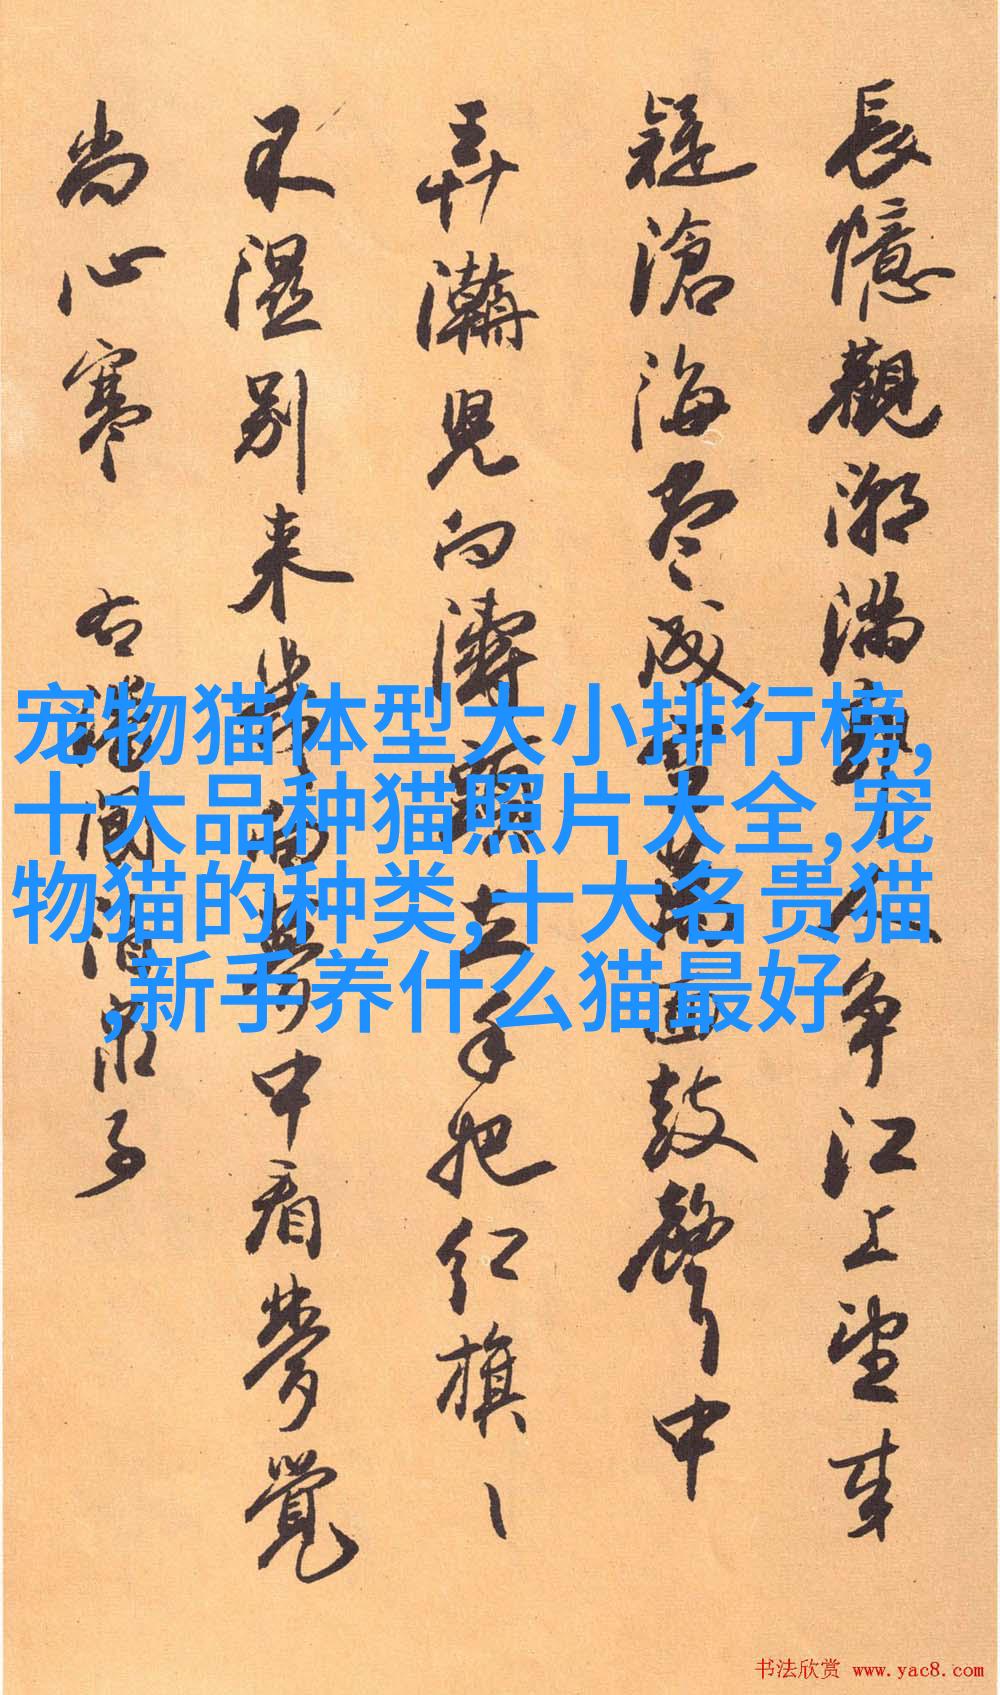 長憶觀潮滿郭人爭江上望来
疑滄海盡成空萬面鼓聲中
弄潮兒向濤頭立手把红旗〻
不濕别来幾向夢中看夢覺
尚心寒 右潘閬酒泉子
宠物猫体型大小排行榜,
十大品种猫照片大全,宠
物猫的种类,十大名贵猫
,新手养什么猫最好
书法欣赏 www.yac8.com